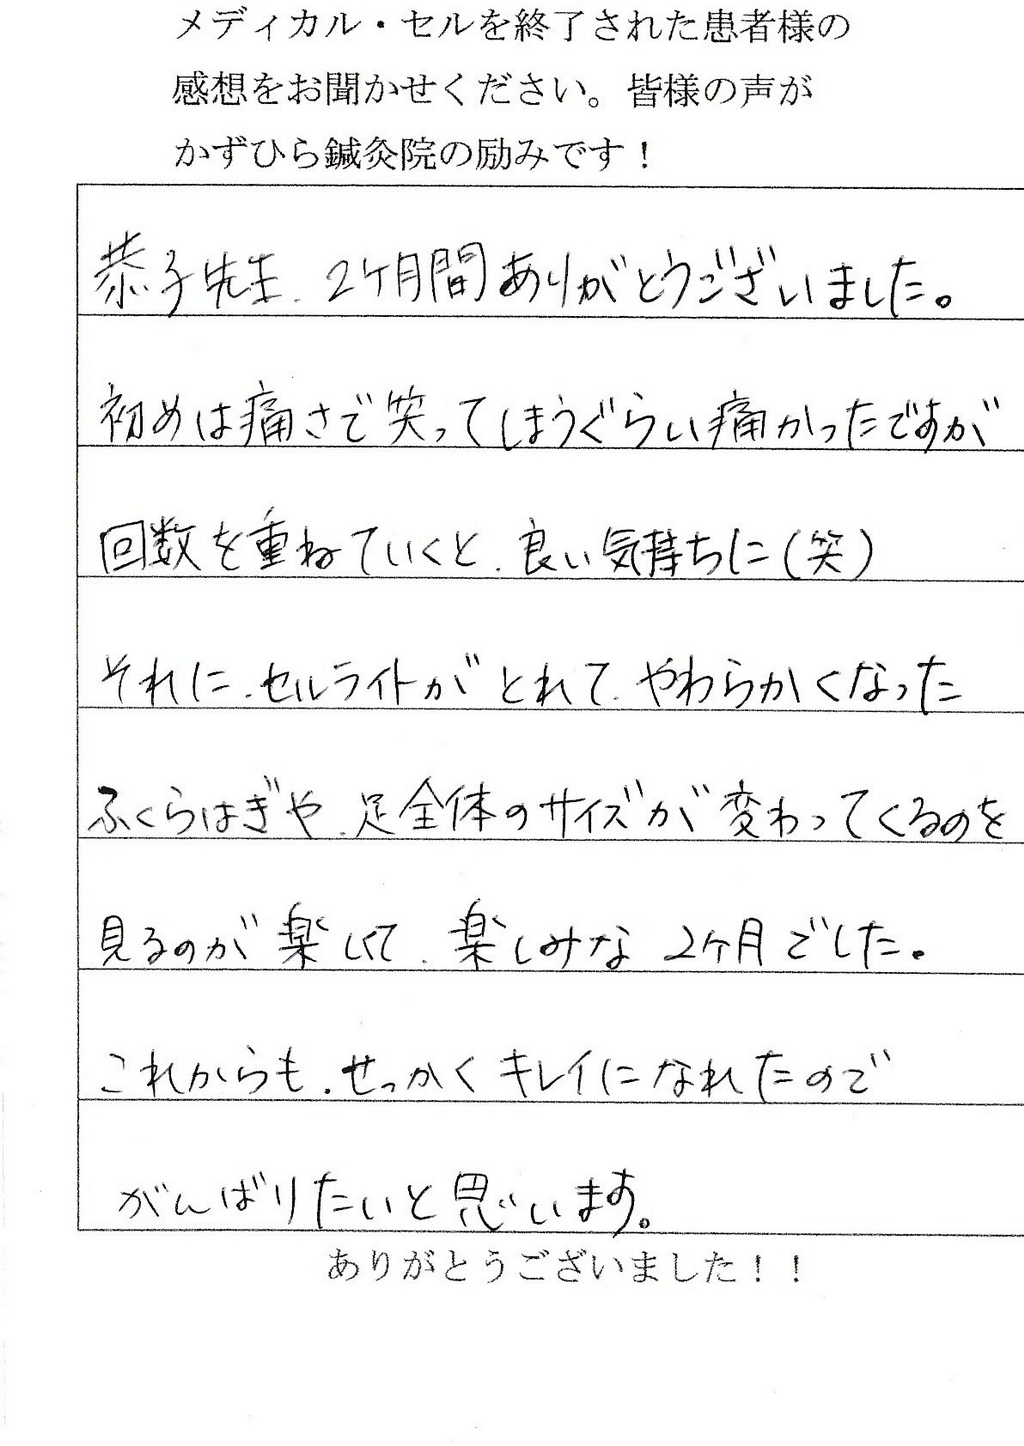 メディカル・セルを終了された患者様の
感想をお聞かせください。皆様の声が
かずひら鍼灸院の励みです！
恭子先生、2ヶ月間ありがとうございました。
初めは痛さで笑ってしまうぐらい痛かったですが
回数を重ねていくと、良い気持ちに(笑)
それに、セルライトがとれて、やわらかくなった
ふくらはぎや、足全体のサイズが変わってくるのを
見るのが楽しくて、楽しみな2ヶ月でした。
これからも、せっかくキレイになれたので
がんばりたいと思います。
ありがとうございました！！